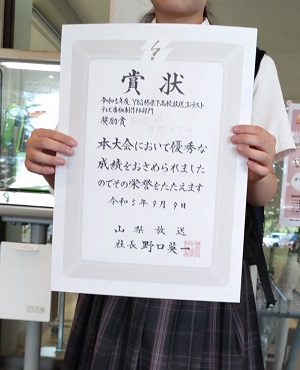 賞状
令和5年度 YBS杯県下高校放送コンテスト
テレビ番組制作部門
奨励賞
本大会において優秀な
成績をおさめられました
のでその栄誉をたたえます
令和5年9月9日
山梨放送
社長 野口英一